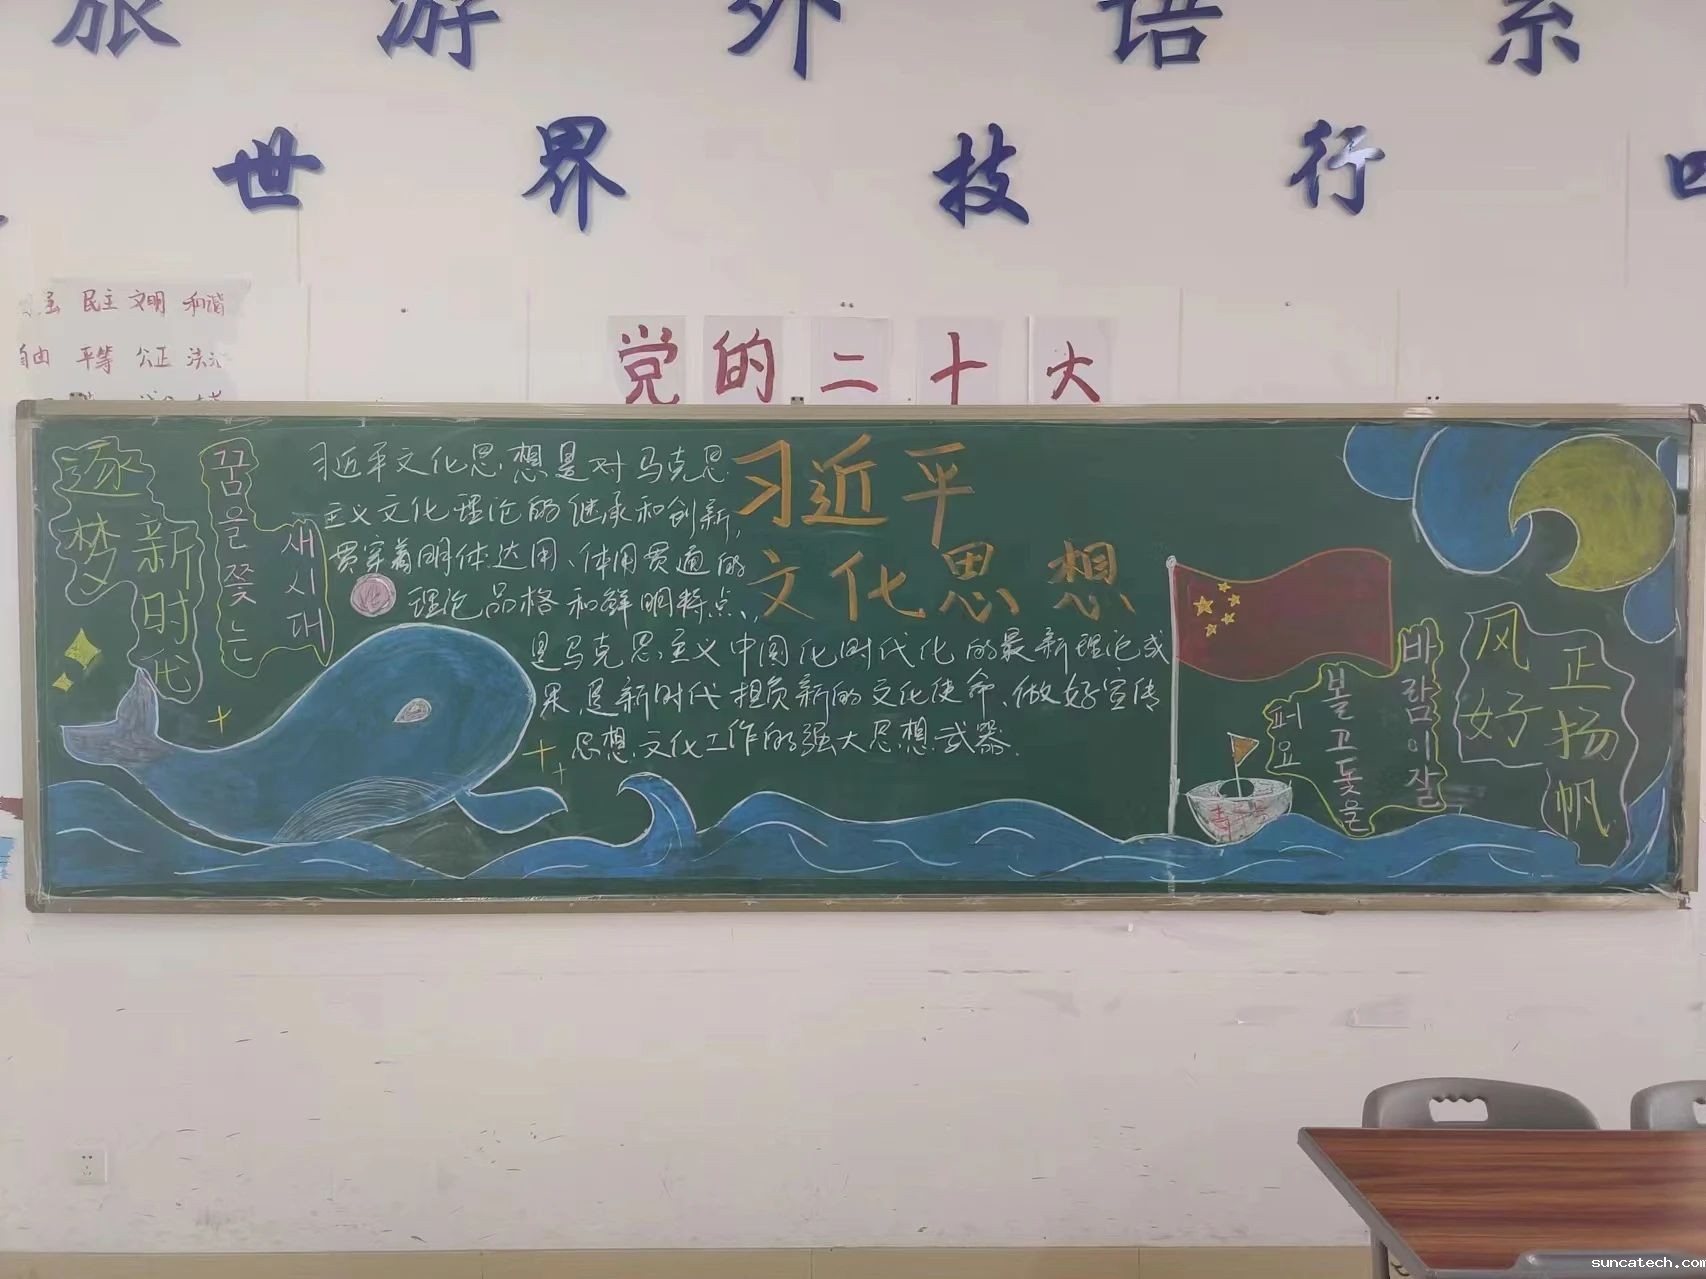 旅游外语系
世界 技行
民主 文明 和谐
自由 平等 公正 法治
党的二十大
逐梦
新时代
꿈을 쫓는
새시대
习近平文化思想是对马克思
主义文化理论的继承和创新,
贯穿着明体达用、体用贯通的
理论品格和鲜明特点,
是马克思主义中国化时代化的最新理论成
果,是新时代担负新的文化使命、做好宣传
思想文化工作的强大思想武器.
习近平
文化思想
바람이 잘
불고 돛을
펴요
风好
正扬帆
suncatech.com